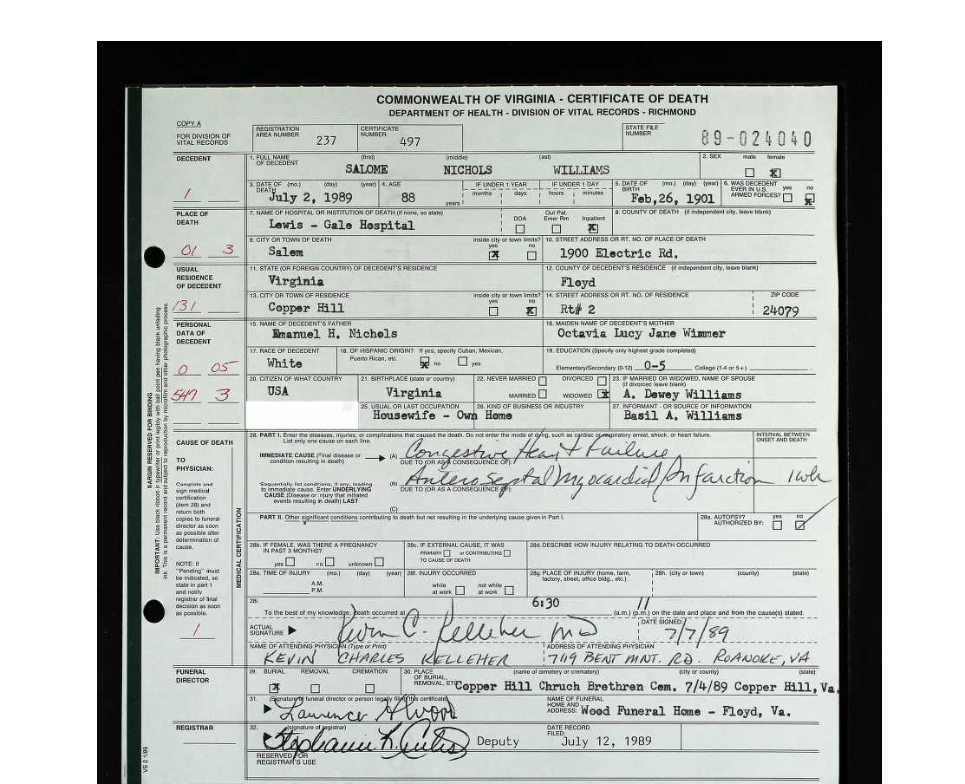 COMMONWEALTH OF VIRGINIA - CERTIFICATE OF DEATH
DEPARTMENT OF HEALTH - DIVISION OF VITAL RECORDS - RICHMOND
COPY A
FOR DIVISION OF VITAL RECORDS
REGISTRATION AREA NUMBER 237 CERTIFICATE NUMBER 497 STATE FILE NUMBER 89-024040
DECEDENT
1. FULL NAME OF DECEDENT (first) (middle) (last) 2. SEX male female
SALOME NICHOLS WILLIAMS X
3. DATE OF DEATH (mo.) (day) (year) 4. AGE IF UNDER 1 YEAR IF UNDER 1 DAY 5. DATE OF BIRTH (mo.) (day) (year) 6. WAS DECEDENT EVER IN U.S. ARMED FORCES? yes no
months days hours minutes
1 July 2, 1989 88 years Feb,26, 1901 X
PLACE OF DEATH
7. NAME OF HOSPITAL OR INSTITUTION OF DEATH (if none, so state) DOA Out Pat. Emer Rm Inpatient 8. COUNTY OF DEATH (if independent city, leave blank)
Lewis - Gale Hospital X
9. CITY OR TOWN OF DEATH inside city or town limits? yes no 10. STREET ADDRESS OR RT. NO. OF PLACE OF DEATH
01 3 Salem X 1900 Electric Rd.
USUAL RESIDENCE OF DECEDENT
11. STATE (OR FOREIGN COUNTRY) OF DECEDENT'S RESIDENCE 12. COUNTY OF DECEDENT'S RESIDENCE (if independent city, leave blank)
Virginia Floyd
13. CITY OR TOWN OF RESIDENCE inside city or town limits? yes no 14. STREET ADDRESS OR RT. NO. OF RESIDENCE ZIP CODE
131 Copper Hill X Rt# 2 24079
PERSONAL DATA OF DECEDENT
15. NAME OF DECEDENT'S FATHER 16. MAIDEN NAME OF DECEDENT'S MOTHER
Emanuel H. Nichols Octavia Lucy Jane Wimmer
17. RACE OF DECEDENT 18. OF HISPANIC ORIGIN? If yes, specify Cuban, Mexican, Puerto Rican, etc. no yes 19. EDUCATION (Specify only highest grade completed)
0 05 White X Elementary/Secondary (0-12) 0-5 College (1-4 or 5+)
20. CITIZEN OF WHAT COUNTRY 21. BIRTHPLACE (state or country) 22. NEVER MARRIED DIVORCED MARRIED WIDOWED X 23. IF MARRIED OR WIDOWED, NAME OF SPOUSE (if divorced leave blank)
547 3 USA Virginia A. Dewey Williams
25. USUAL OR LAST OCCUPATION 26. KIND OF BUSINESS OR INDUSTRY 27. INFORMANT - OR SOURCE OF INFORMATION
Housewife - Own Home Basil A. Williams
CAUSE OF DEATH
28. PART I. Enter the diseases, injuries, or complications that caused the death. Do not enter the mode of dying, such as cardiac or respiratory arrest, shock, or heart failure. List only one cause on each line. INTERVAL BETWEEN ONSET AND DEATH
IMMEDIATE CAUSE (Final disease or condition resulting in death) (A) Congestive Heart Failure
DUE TO (OR AS A CONSEQUENCE OF):
Sequentially list conditions, if any, leading to immediate cause. Enter UNDERLYING CAUSE (Disease or injury that initiated events resulting in death) LAST
(B) Antero Septal Myocardial Infarction 1 wk
DUE TO (OR AS A CONSEQUENCE OF):
(C)
TO PHYSICIAN:
Complete and sign medical certification (item 28) and return both copies to funeral director as soon as possible after determination of cause.
NOTE: If "Pending" must be indicated, so state in part 1 and notify registrar of final decision as soon as possible.
1
MEDICAL CERTIFICATION
PART II. Other significant conditions contributing to death but not resulting in the underlying cause given in Part I. 28a. AUTOPSY? AUTHORIZED BY: yes no
28b. IF FEMALE, WAS THERE A PREGNANCY IN PAST 3 MONTHS? yes no unknown
28c. IF EXTERNAL CAUSE, IT WAS PRIMARY or CONTRIBUTING TO CAUSE OF DEATH
28d. DESCRIBE HOW INJURY RELATING TO DEATH OCCURRED
28e. TIME OF INJURY (mo.) (day) (year) A.M. P.M.
28f. INJURY OCCURRED while at work not while at work
28g. PLACE OF INJURY (home, farm, factory, street, office bldg., etc.) 28h. (city or town) (county) (state)
28i. To the best of my knowledge, death occurred at 6:30 (a.m.) (p.m.) on the date and place and from the cause(s) stated.
ACTUAL SIGNATURE Kevin C. Kelleher MD DATE SIGNED: 7/7/89
NAME OF ATTENDING PHYSICIAN (Type or Print) ADDRESS OF ATTENDING PHYSICIAN
KEVIN CHARLES KELLEHER 7119 BENT MNT. RD. ROANOKE, VA
FUNERAL DIRECTOR
29. BURIAL REMOVAL CREMATION 30. PLACE OF BURIAL, REMOVAL, ETC. (name of cemetery or crematory) (city or county) (state)
X Copper Hill Chruch Brethren Cem. 7/4/89 Copper Hill, Va.
31. (Signature of funeral director or person legally filing this certificate) NAME OF FUNERAL HOME AND ADDRESS:
Laurence A Wood Wood Funeral Home - Floyd, Va.
REGISTRAR
32. (signature of registrar) DATE RECORD FILED:
Stephanie K. Deputy July 12, 1989
RESERVED FOR REGISTRAR'S USE
VS 2 1/89
MARGIN RESERVED FOR BINDING